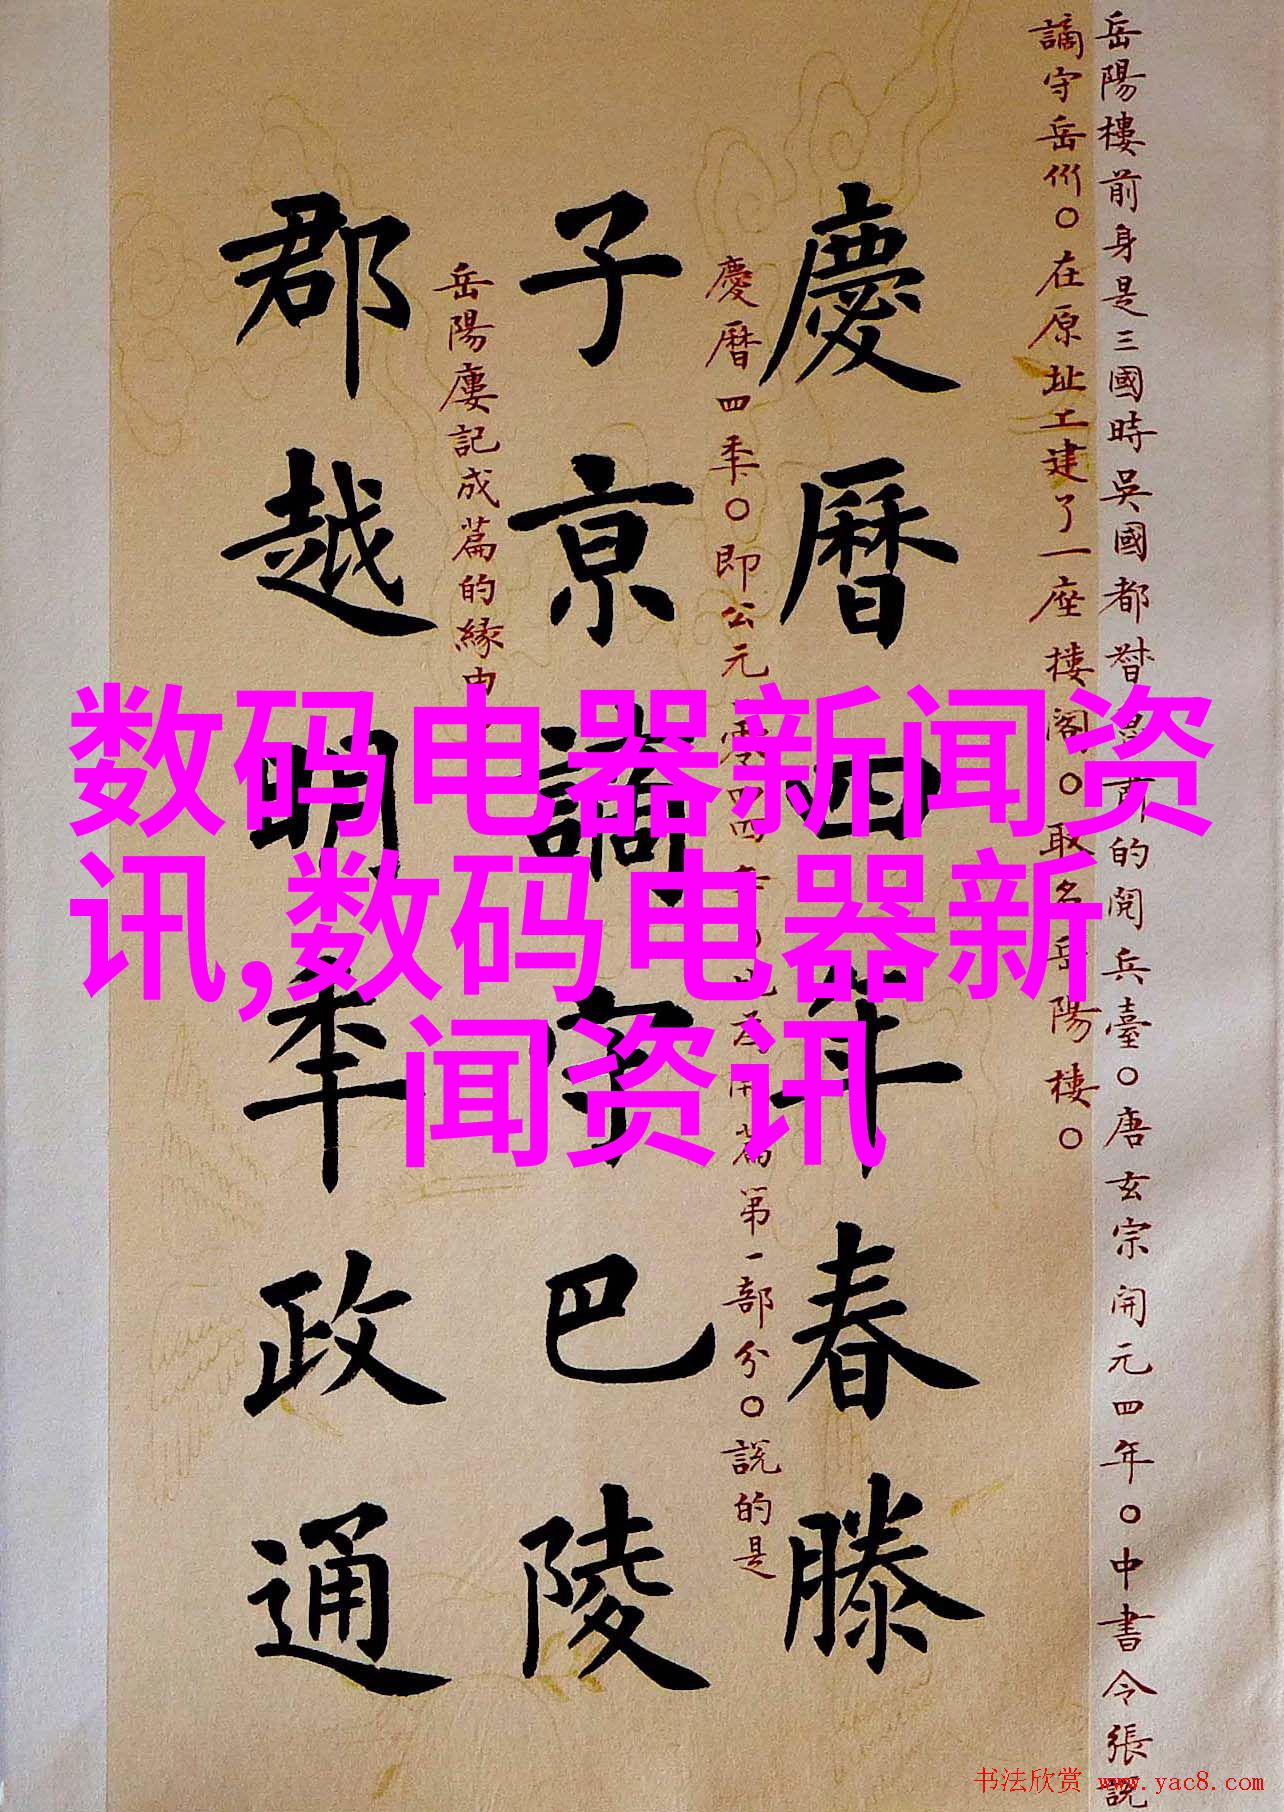 岳陽樓前身是三國時吳國都督的閱兵臺○唐玄宗開元四年○中書令張說
謫守岳州○在原址工建了一座樓閣○取名岳陽樓○
慶曆四年春滕
慶曆四年○即公元 零四四年 開篇第一部份○說的是
子京謫守巴陵
岳陽廔記成篇的緣由
郡越明年政通
数码电器新闻资
讯,数码电器新
闻资讯
书法欣赏 www.yac8.com